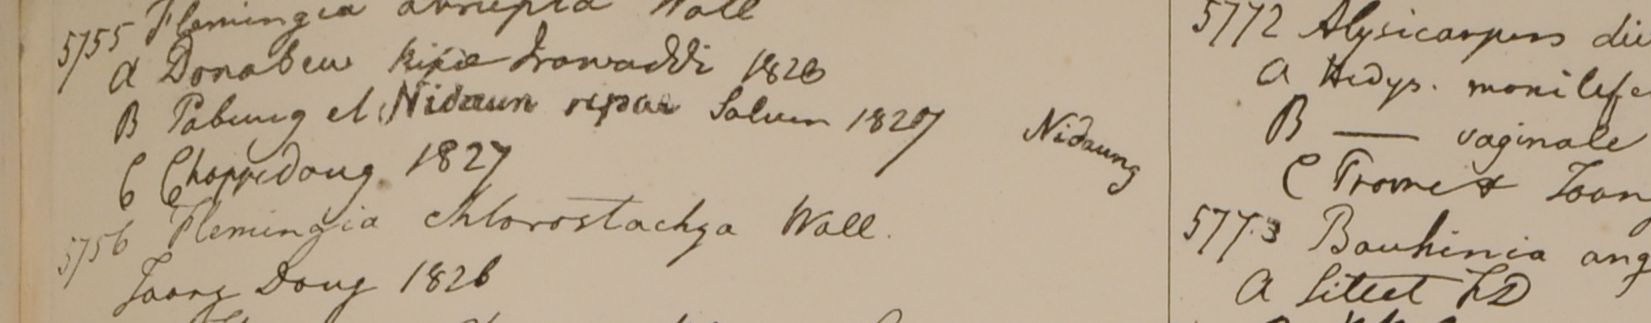 5755 Flemingia abrupta Wall
A Donabew Ripae Irawaddi 1826
B Pabung et Nidaun ripae Saluen 1827 Nidaung
C Choppedong 1827
5756 Flemingia chlorostachya Wall.
Taong Dong 1826
5772 Alysicarpus
A Hedys. monilife
B —— vaginale
C Prome & Taong
5773 Bauhinia ang
A Sillet FD